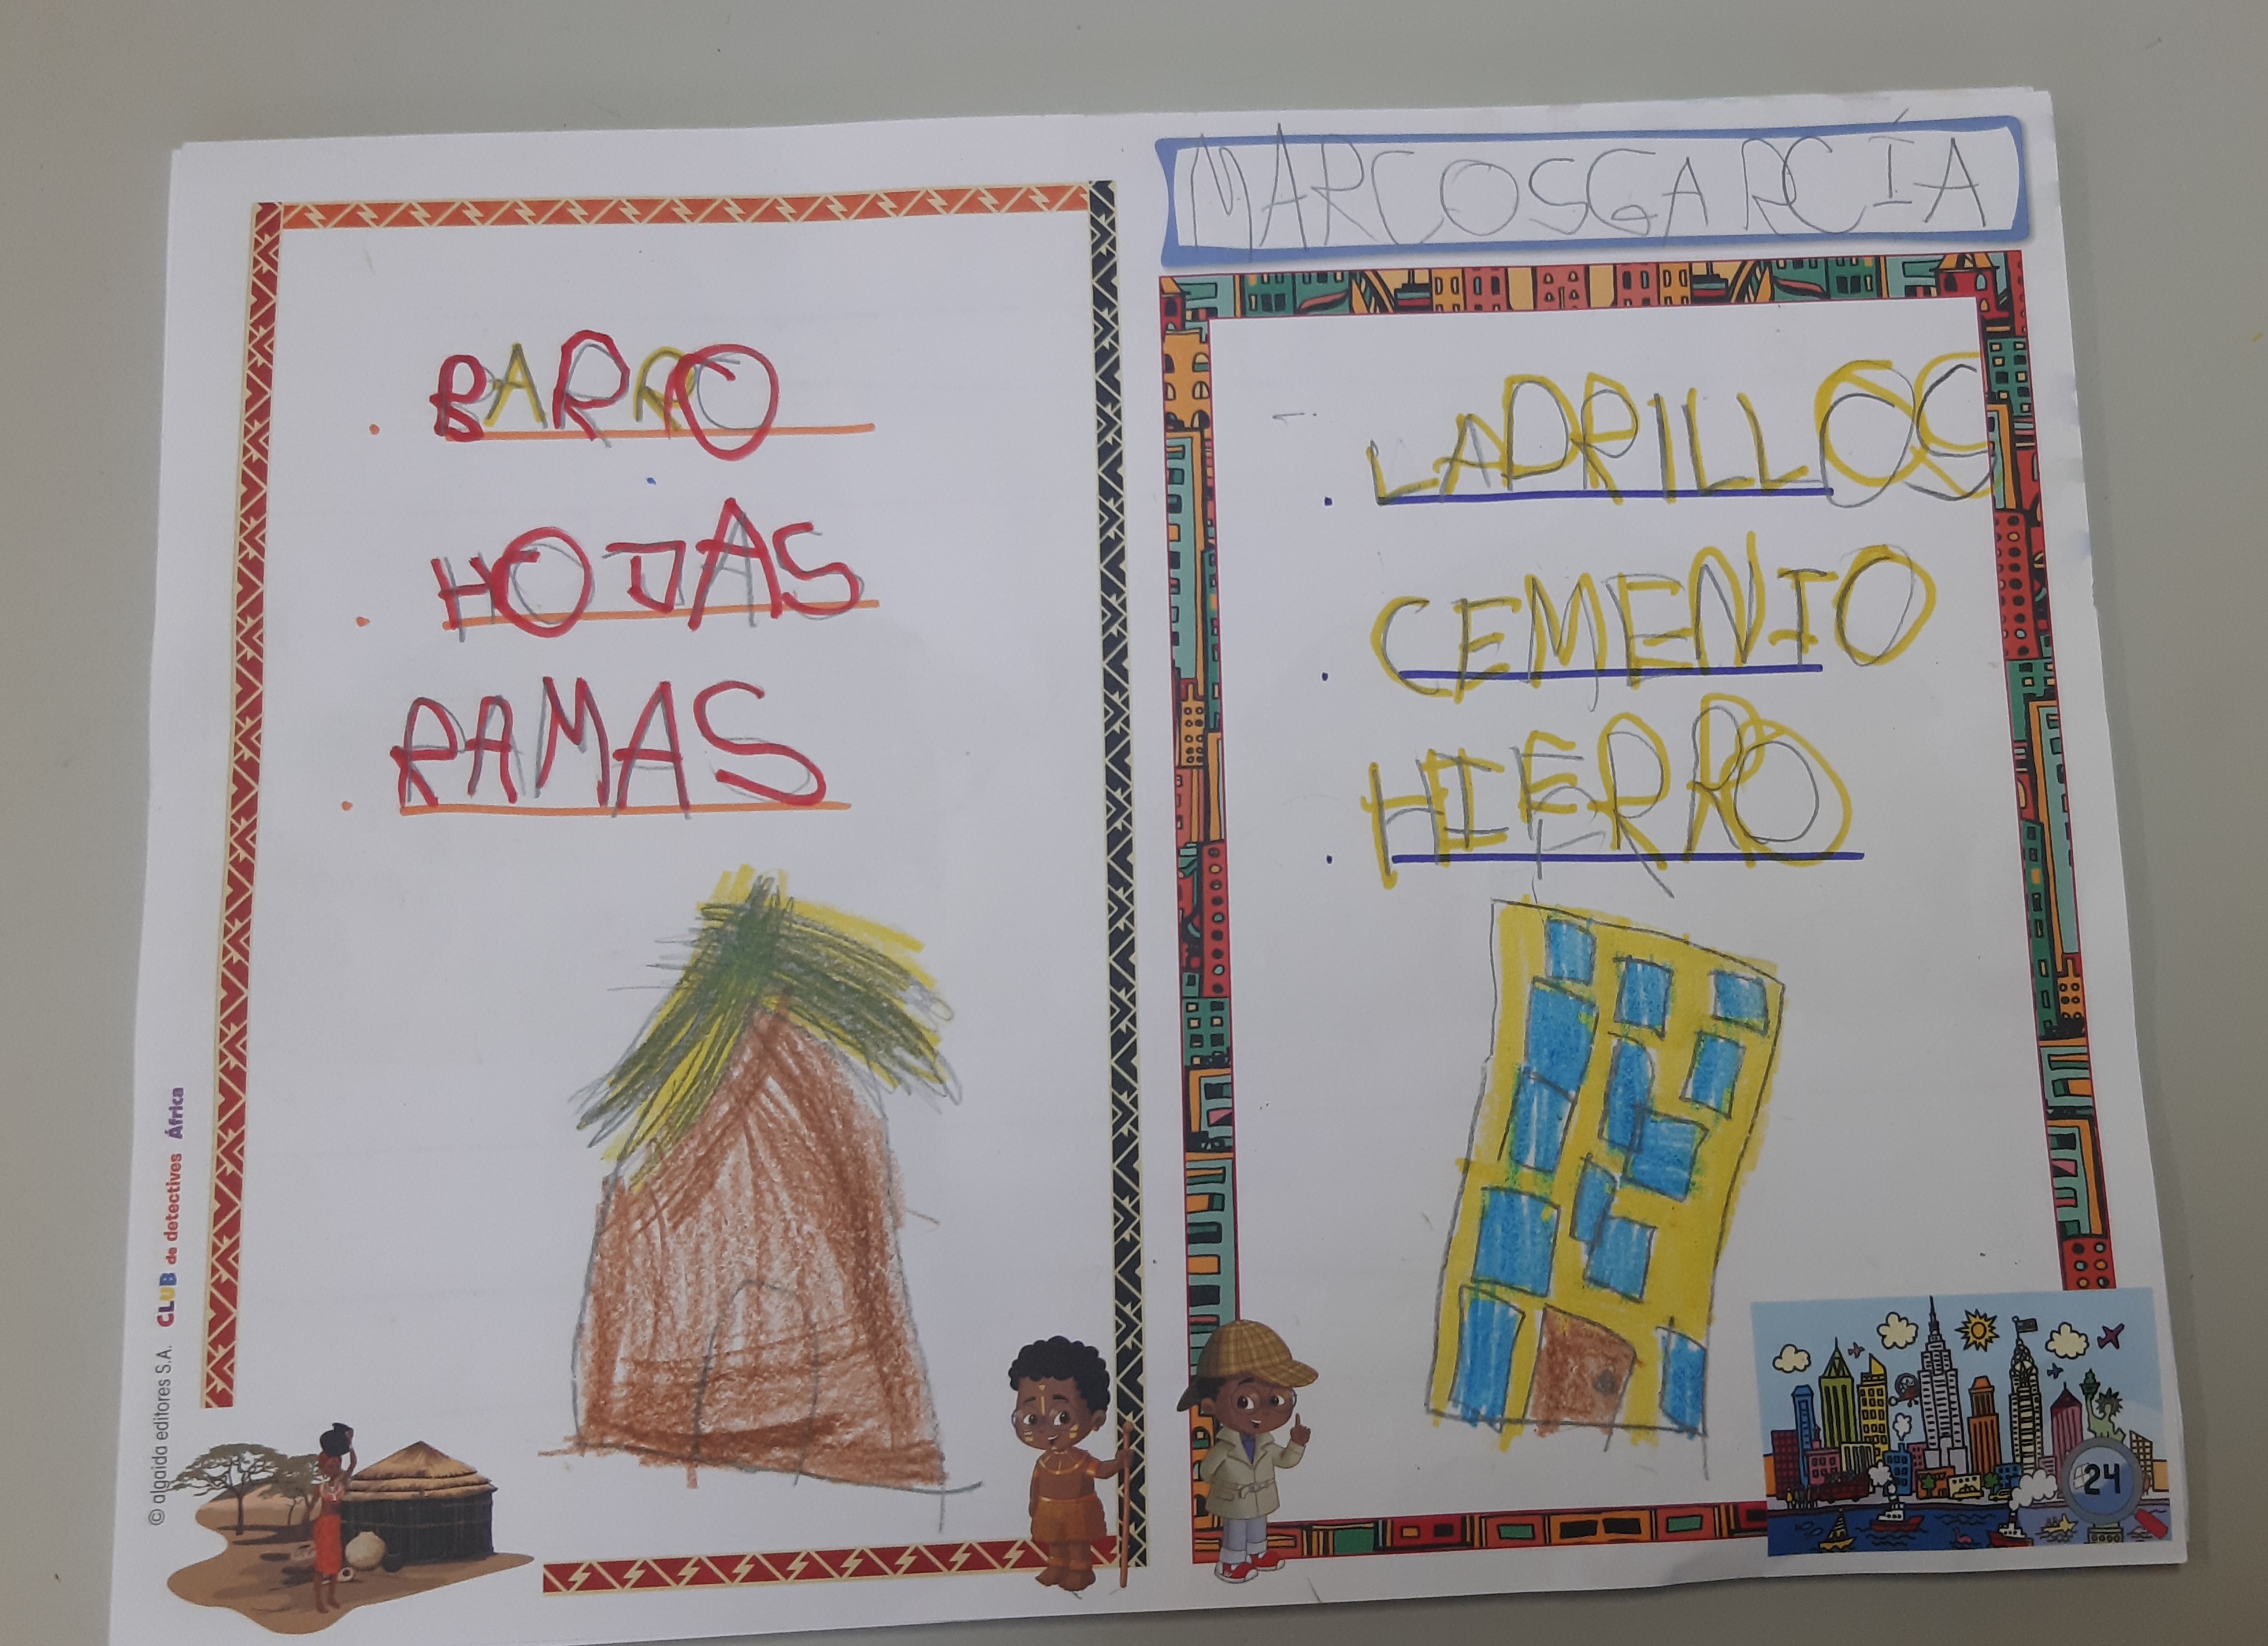 MARCOS GARCÍA
BARRO
HOJAS
RAMAS
LADRILLOS
CEMENTO
HIERRO
© algaida editores S.A. CLUB de detectives África
24